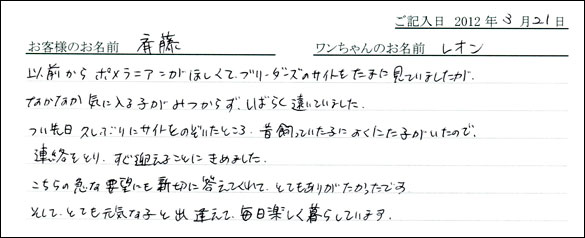 ご記入日 2012年3月21日
お客様のお名前 斉藤 ワンちゃんのお名前 レオン
以前からポメラニアンがほしくてブリーダーズのサイトもたまに見ていましたが、
なかなか気に入る子がみつからず、しばらく遠いていました。
つい先日久しぶりにサイトをのぞいたところ、昔飼っていた子によくにた子がいたので、
連絡をとり、すぐ迎えることにきめました。
こちらの急な要望にも親切に答えてくれて、とてもありがたかったです
そして、とても元気な子と出逢えて、毎日楽しく暮らしています。